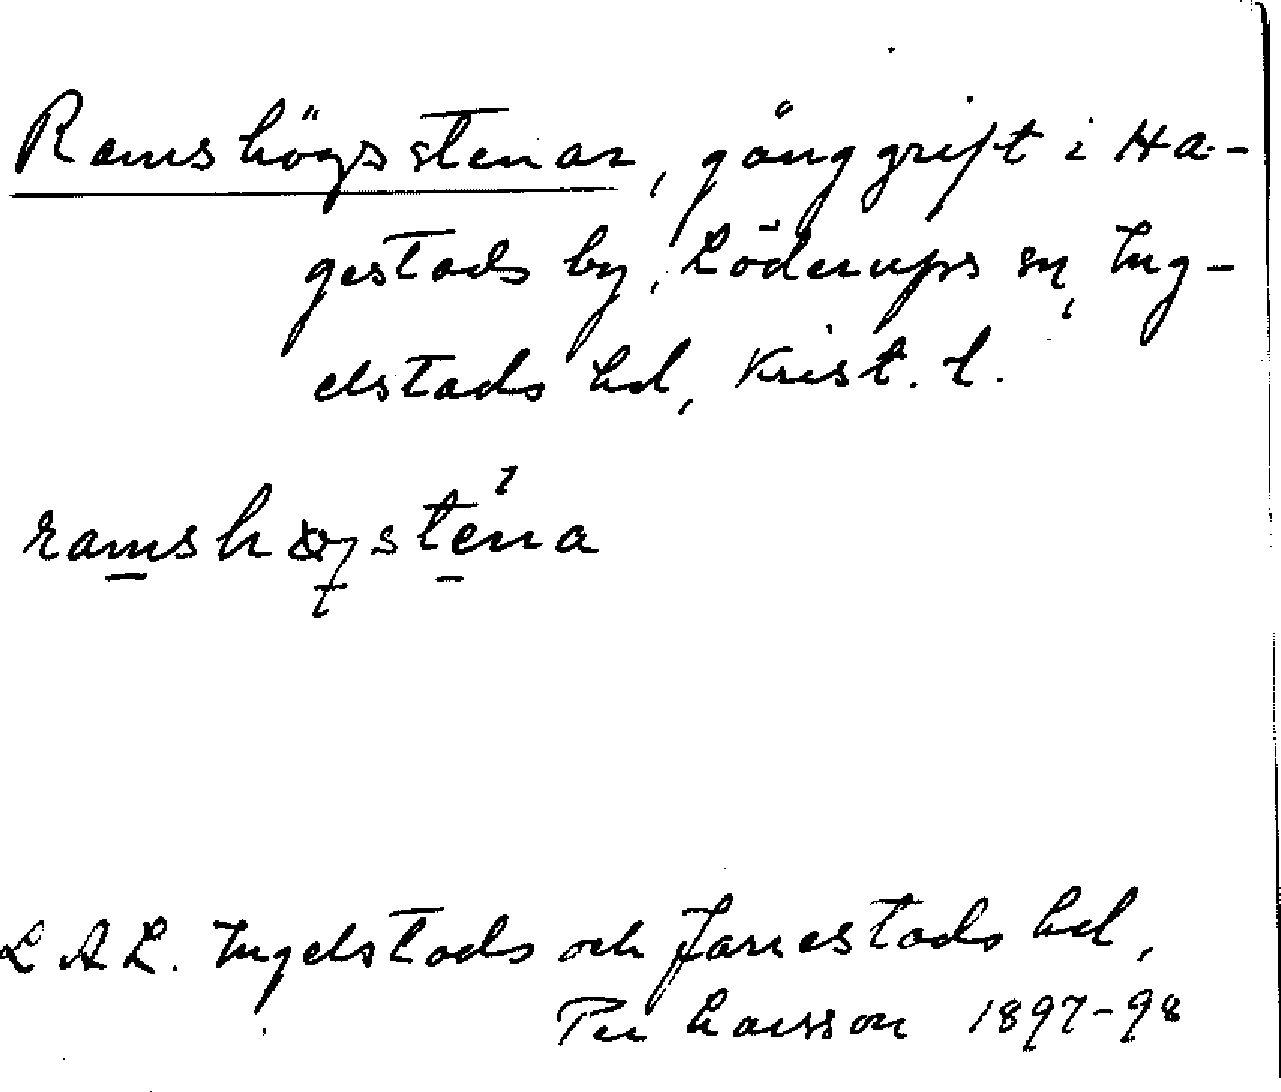 Ramshögsstenar, gånggrift i Ha-
gestads by, Löderups sn, Ing-
elstads hd, Krist. l.
ramshøgstena
LAL. Ingelstads och Järrestads hd,
Per Larsson 1897-98